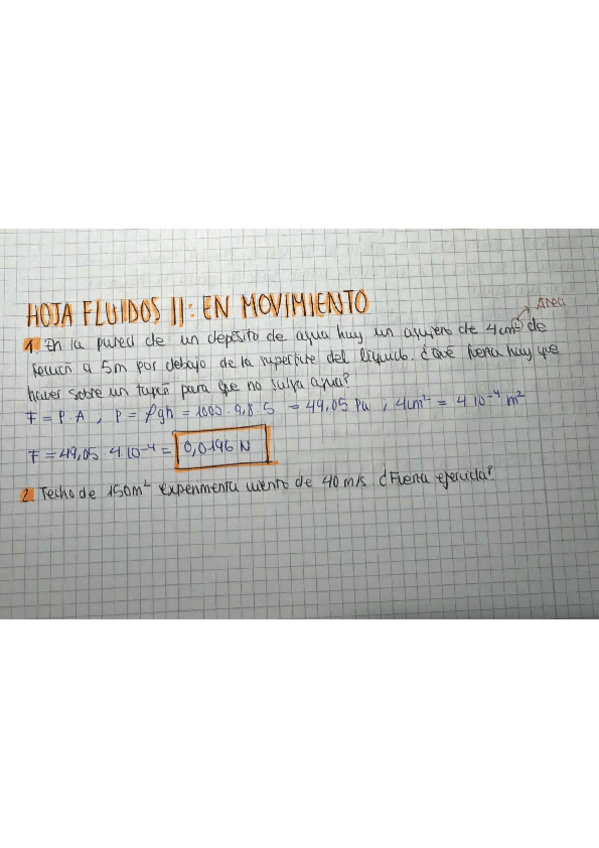 HOJA FLUIDOS II: EN MOVIMIENTO
Área
1. En la pared de un depósito de agua hay un agujero de 4cm² de
sección a 5m por debajo de la superficie del líquido. ¿Qué fuerza hay que
hacer sobre un tapón para que no salga agua?
F = P·A , P = ρgh = 1000 · 9,8 · 5 = 49,05 Pa , 4cm² = 4·10⁻⁴ m²
F = 49,05 · 4·10⁻⁴ = 0,0196 N
2. Techo de 150m² experimenta viento de 40 m/s. ¿Fuerza ejercida?